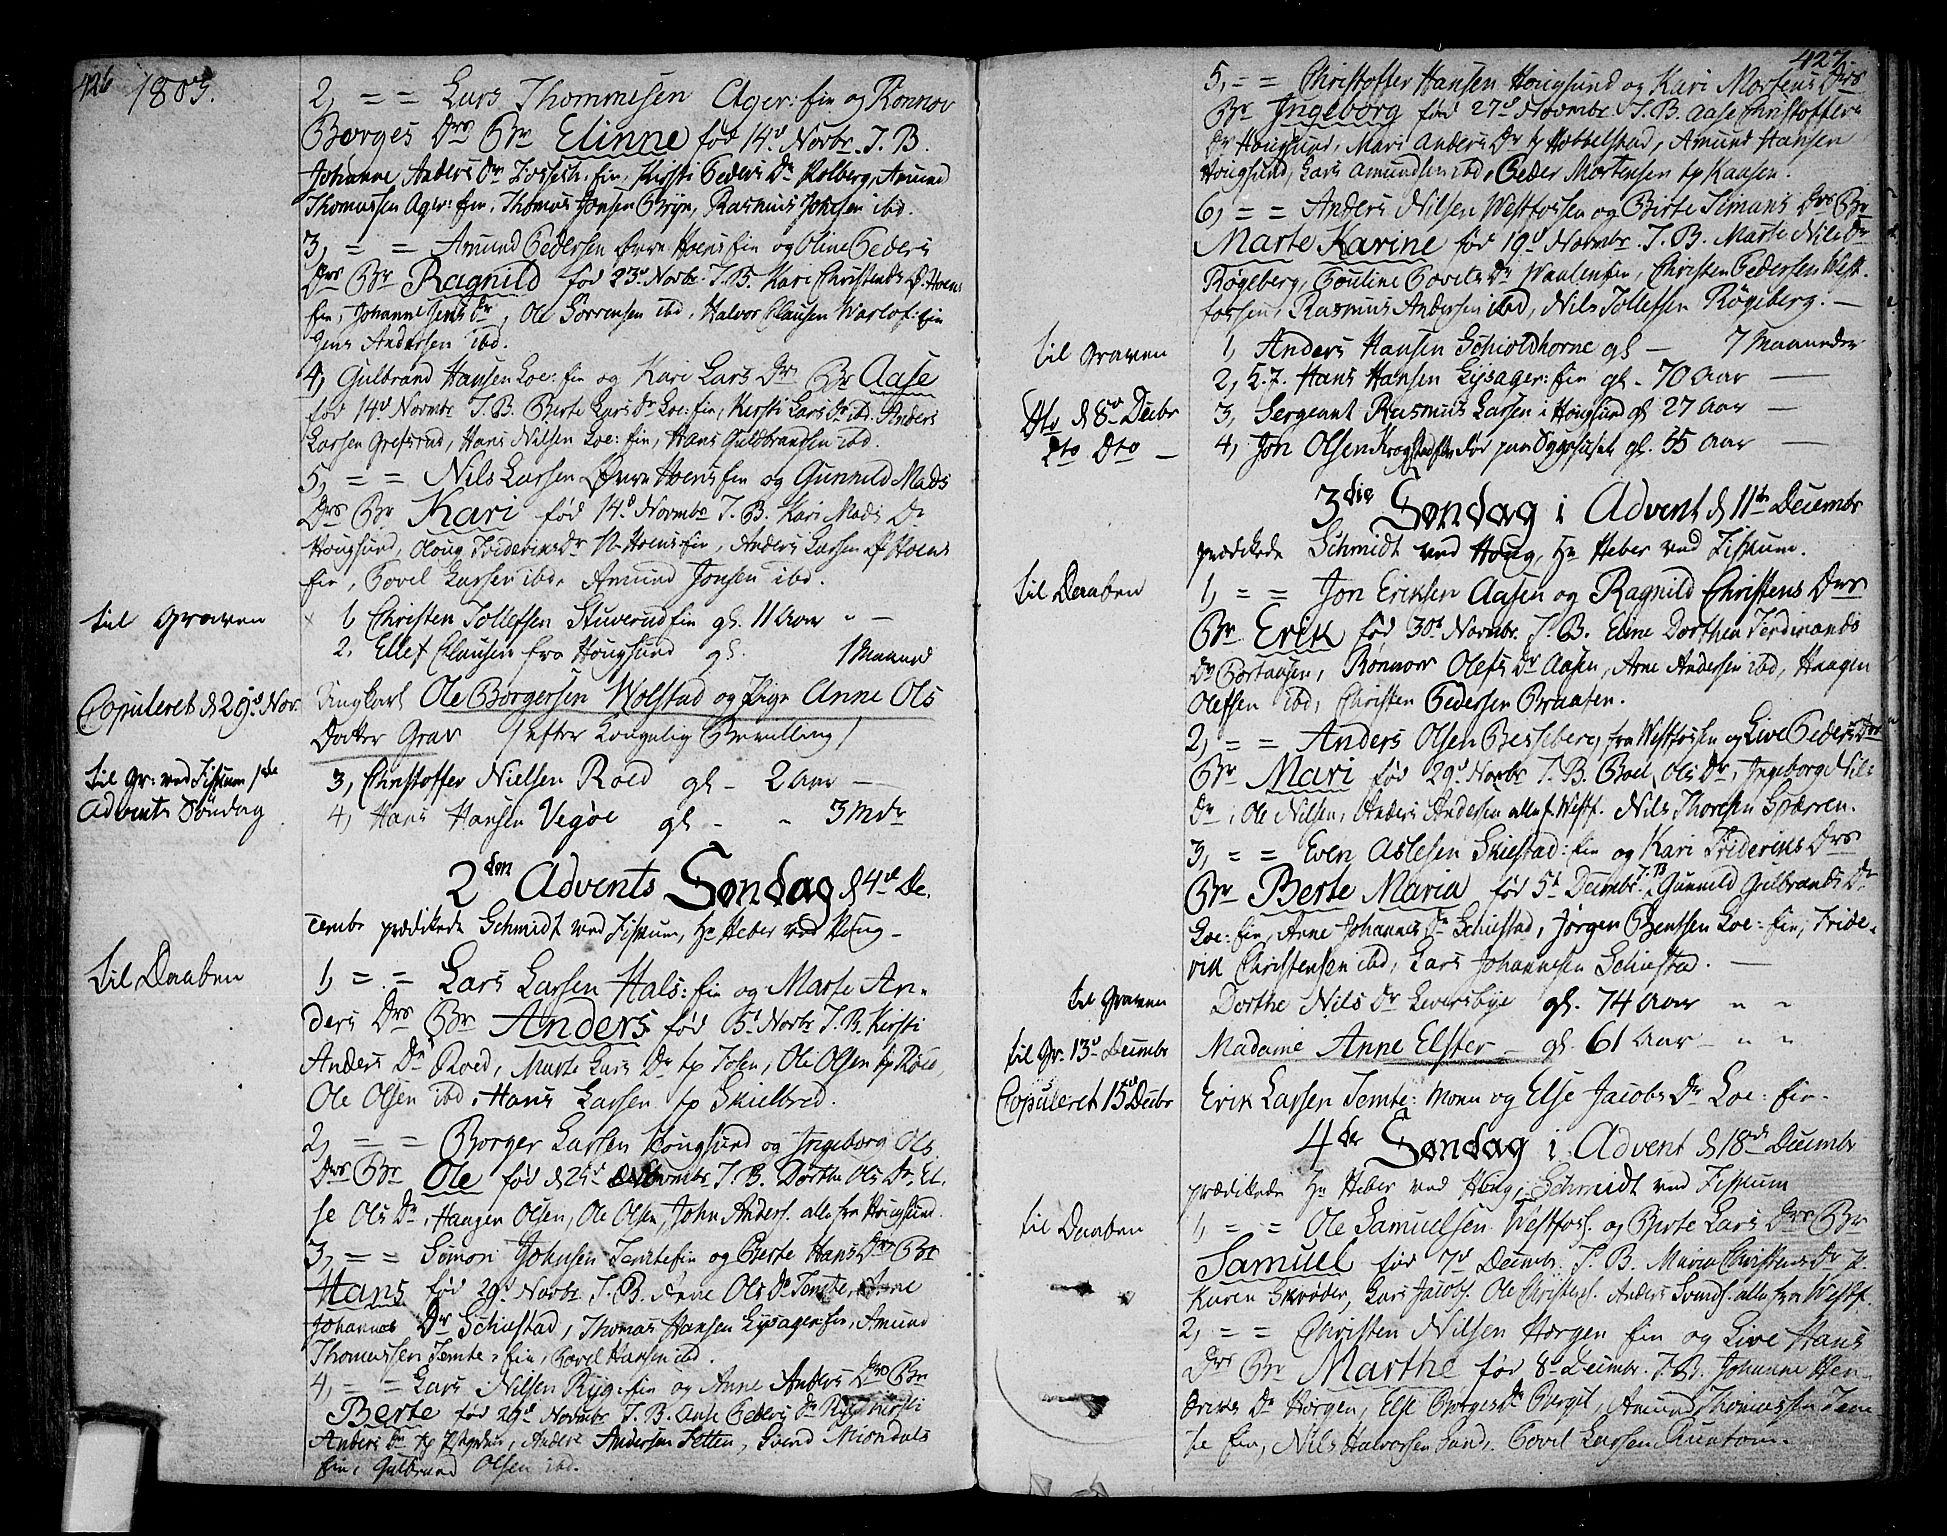 426 1803.
2, = = Lars Thommesen Ager:fin og Rønnov
Borges Drs Br Elinne fød 14d Novbr. T. B.
Johanne Anders Dr Fossesh:fin, Kirsti Peders Dr Kolberg, Amund
Thomassen Ager:fin, Thomas Jonsen Bryn, Rasmus Johnsen ibd.
3, = = Amund Pedersen Øvre Hoensfin og Oline Peders
Drs Br Ragnild fød 23d Novbr T. B. Kari Christens D. Hoens
fin, Johanne Jens Dr, Ole Sørrensen ibd, Halvor Clausen Warlof:fin
Jens Andersen ibd.
4, Gulbrand Hansen Loe:fin og Kari Lars Dr Br Aase
fød 14d Novmbr T. B. Berte Lars Dr Loe:fin, Kirsti Lars Dr ibd. Anders
Larsen Grefsrud, Hans Nilsen Loe:fin, Hans Guldbrandsen ibd.
5, = = Nils Larsen Øvre Hoensfin og Gunnild Mads
Drs Br Kari fød 14d Novmbr T. B. Kari Mads Dr
Hougsund, Oloug Friderics Dr N. Hoensfin, Anders Larsen Ø Hoens
fin, Povel Larsen ibd. Amund Jonsen ibd.
til Graven
1, Christen Tollefsen Stuverudfin gl. 11 Aar
2. Ellef Clausen fra Hougsund gl. 1 Maaned
Copuleret d 29d Nov.
Ungkarl Ole Borgersen Wolstad og Pige Anne Ols
Datter Grav /efter Kongelig Bevilling/
til Gr: ved Fiskum 1ste
Advents Søndag
3, Christoffer Nielsen Roed gl. 2 Aar
4, Hans Hansen Vegøe gl. 3 Mdr
2den Advents Søndag d 4de De.
cembr prædikede Schmidt ved Fiskum, Hr Heber ved Houg
til Daaben
1, = = Lars Larsen Hals:fin og Marte An.
ders Drs Br Anders fød 5d Novbr T. B. Kirsti
Anders Dr Roed, Marte Lars Dr tp Fosen, Ole Olsen tp Roed,
Ole Olsen ibd. Hans Larsen tp Skielbred.
2, = = Borger Larsen Hougsund og Ingeborg Ols
Drs Br Ole fød d 25d Novmbr T. B. Dorthe Ols Dr El.
se Ols Dr, Haagen Olsen, Ole Olsen, John Anders. alle fra Hougsund.
3, = = Simon Johnsen Temtefin og Berte Hans Drs Br
Hans fød 29d Novbr T. B. Anne Ols Dr Temte, Anne
Johannes Dr Schiestad, Thomas Hansen Lysager:fin, Amund
Thomassen Temte:fin, Povel Hansen ibd.
4, = = Lars Nilsen Ryg:fin og Anne Anders Drs Br
Berte fød 29d Novmbr T. B. Aase Peders Dr Ryg Kirsti
Anders Dr tp, Anders Andersen Tetten, Svend Miøndals
fin, Gulbrand Olsen ibd.
427
5, = = Christoffer Hansen Hougsund og Kari Mortens Drs
Br Ingeborg fød 27d Novmbr. T. B. Aase Christoffers
Dr Hougsund, Mari Anders Dr tp Hobbelstad, Amund Hansen
Hougsund, Lars Amundsen ibd, Peder Mortensen tp Kaasen.
6, = = Anders Nilsen Westfossen og Birte Simons Drs Br
Marte Karine fød 19d Novmbr. T. B. Marte Nils Dr
Røgeberg, Pouline Povels Dr Waalenfin, Christen Pedersen West-
fossen, Rasmus Andersen ibd, Nils Tollefsen Røgeberg.
til Graven
1, Anders Hansen Schioldhorne gl 7 Maaneder
2, S. T. Hans Hansen Lysager:fin gl. 70 Aar
Dto d 8d Decbr
3, Sergeant Rasmus Larsen i Hougsund gl 27 Aar
Dto Dto
4, Jon Olsen død paa Sygehuset gl. 35 Aar
3die Søndag i Advent d 11te Decembr
prædikede Schmidt ved Houg, Hr Heber ved Fiskum.
til Daaben
1, = = Jon Eriksen Aasen og Ragnild Christens Drs
Br Erik fød 30d Novmbr. T. B. Eline Dorthea Ferdinands
Dr, Rønnov Olefs Dr Aasen, Arne Andersen ibd, Haagen
Olefsen ibd, Christen Pedersen Braaten.
2, = = Anders Olsen Besseberg fra Westfossen og Live Peders Drs
Br Mari fød 29d Novbr T. B. Boel Ols Dr, Ingeborg Nils
Dr, Ole Nilsen, Anders Andersen alle f. Westf. Nils Thoresen Sparren.
3, = = Even Aslesen Skiestad:fin og Kari Friderics Drs
Br Berte Maria fød 5d Decmbr. T. B. Gunnild Gulbrands Dr
Loe:fin, Arne Johannes Dr Schiestad, Jørgen Bentsen Loe:fin, Fride.
rik Christensen ibd, Lars Johannesen Schiestad.
til Graven
Dorthe Nils Dr Leversbye gl. 74 Aar
til Gr. 13d Decmbr
Madame Anne Elster gl. 61 Aar
Copuleret 15d Decbr
Erik Larsen Temte: Moen og Else Jacobs Dr Loe:fin.
4de Søndag i Advent d 18de Decembr
prædikede Hr Heber ved Houg, Schmidt ved Fiskum
til Daaben
1, = = Ole Samuelsen Westfoss. og Berte Lars Drs Br
Samuel fød 7d Decmbr. T. B. Maria Christens Dr
Karen Skrøder, Lars Jacobs. Ole Christens. Anders Svends. alle fra Westf.
2, = = Christen Nilsen Horgen fin og Live Hans
Drs Br Marthe fød 8d Decmbr. T. B. Johanne Hen-
driks Dr Horgen, Else Borges Dr Berget, Amund Thomassen Tem
te fin, Nils Halvorsen Sand, Povel Larsen.